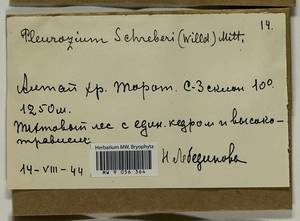 14.
Pleurozium Schreberi (Willd) Mitt.
Алтай хр. Торот. С-З склон 10°
1250 м.
Пихтовый лес с един. кедром и высоко-
травием
Herbarium MW, Bryophyta
MW 9 056 364
14-VIII-44
Н Лебединова